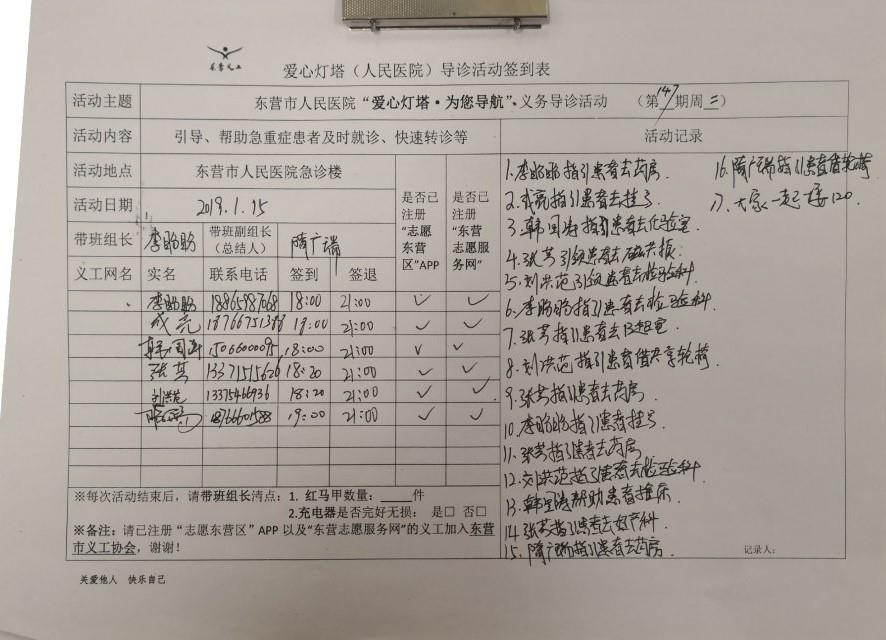 东营义工
爱心灯塔（人民医院）导诊活动签到表
活动主题 东营市人民医院“爱心灯塔·为您导航”、义务导诊活动 （第147期周二）
活动内容 引导、帮助急重症患者及时就诊、快速转诊等 活动记录
活动地点 东营市人民医院急诊楼 是否已注册“志愿东营区”APP 是否已注册“东营志愿服务网”
活动日期 2019.1.15
带班组长 李盼盼 带班副组长（总结人） 隋广瑞
义工网名 实名 联系电话 签到 签退
李盼盼 18:00 21:00 ✓ ✓
成亮 21:00 ✓ ✓
韩国涛 18:00 21:00 ✓ ✓
张芳 18:20 21:00 ✓ ✓
刘洪范 13375466936 18:20 21:00 ✓ ✓
19:00 21:00 ✓ ✓
※每次活动结束后，请带班组长清点：1. 红马甲数量：_____件
2.充电器是否完好无损： 是□ 否□
※备注：请已注册“志愿东营区”APP 以及“东营志愿服务网”的义工加入东营
市义工协会，谢谢！
1.李盼盼指引患者去药房.
2.成亮指引患者去挂号.
3.韩国涛指引患者去化验室.
4.张芳引领患者去磁共振.
5.刘洪范引领患者去检验科.
6.李盼盼指引患者去检验科.
7.张芳指引患者去B超室.
8.刘洪范指引患者借共享轮椅.
9.张芳指引患者去药房.
10.李盼盼指引患者挂号.
11.张芳指引患者去药房.
12.刘洪范指引患者去检验科.
13.韩国涛帮助患者推床.
14.张芳指引患者去妇产科.
15.隋广瑞指引患者去药房.
16.隋广瑞指引患者借轮椅.
17.大家一起接120.
记录人：
关爱他人 快乐自己